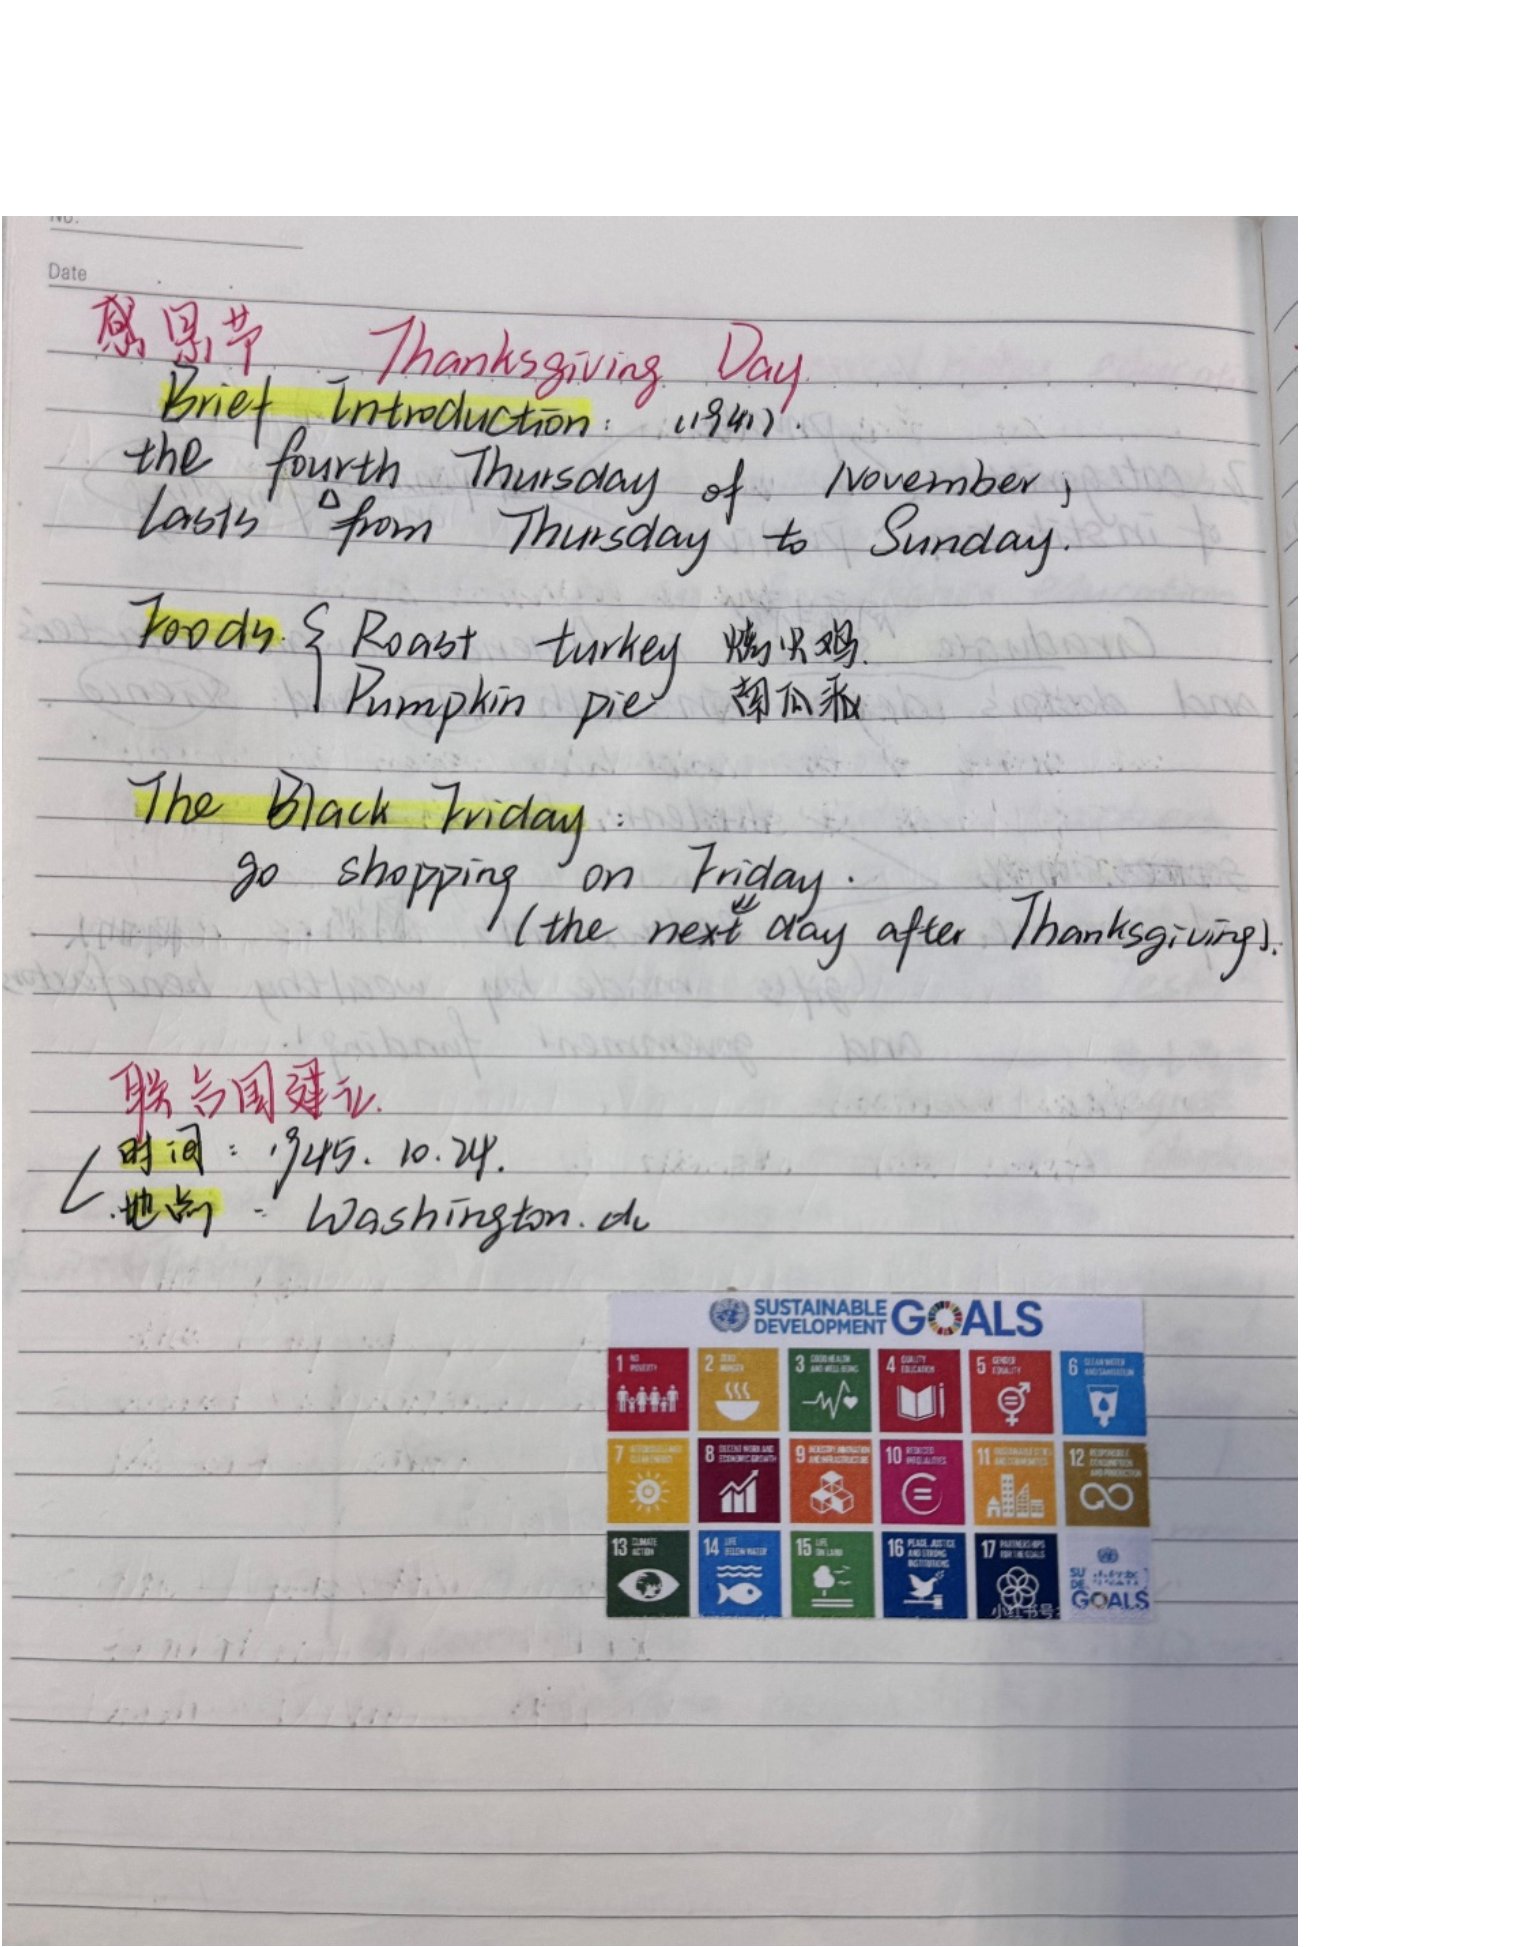 No.
Date
感恩节 Thanksgiving Day
Brief Introduction: (1941).
the fourth Thursday of November,
lasts from Thursday to Sunday.
Foods { Roast turkey 烤火鸡.
Pumpkin pie 南瓜派
The Black Friday:
go shopping on Friday.
(the next day after Thanksgiving).
联合国建立.
时间: 1945. 10. 24.
地点: Washington. dc
SUSTAINABLE DEVELOPMENT GOALS
1 NO POVERTY
2 ZERO HUNGER
3 GOOD HEALTH AND WELL-BEING
4 QUALITY EDUCATION
5 GENDER EQUALITY
6 CLEAN WATER AND SANITATION
7 AFFORDABLE AND CLEAN ENERGY
8 DECENT WORK AND ECONOMIC GROWTH
9 INDUSTRY, INNOVATION AND INFRASTRUCTURE
10 REDUCED INEQUALITIES
11 SUSTAINABLE CITIES AND COMMUNITIES
12 RESPONSIBLE CONSUMPTION AND PRODUCTION
13 CLIMATE ACTION
14 LIFE BELOW WATER
15 LIFE ON LAND
16 PEACE, JUSTICE AND STRONG INSTITUTIONS
17 PARTNERSHIPS FOR THE GOALS
小红书号:
GOALS